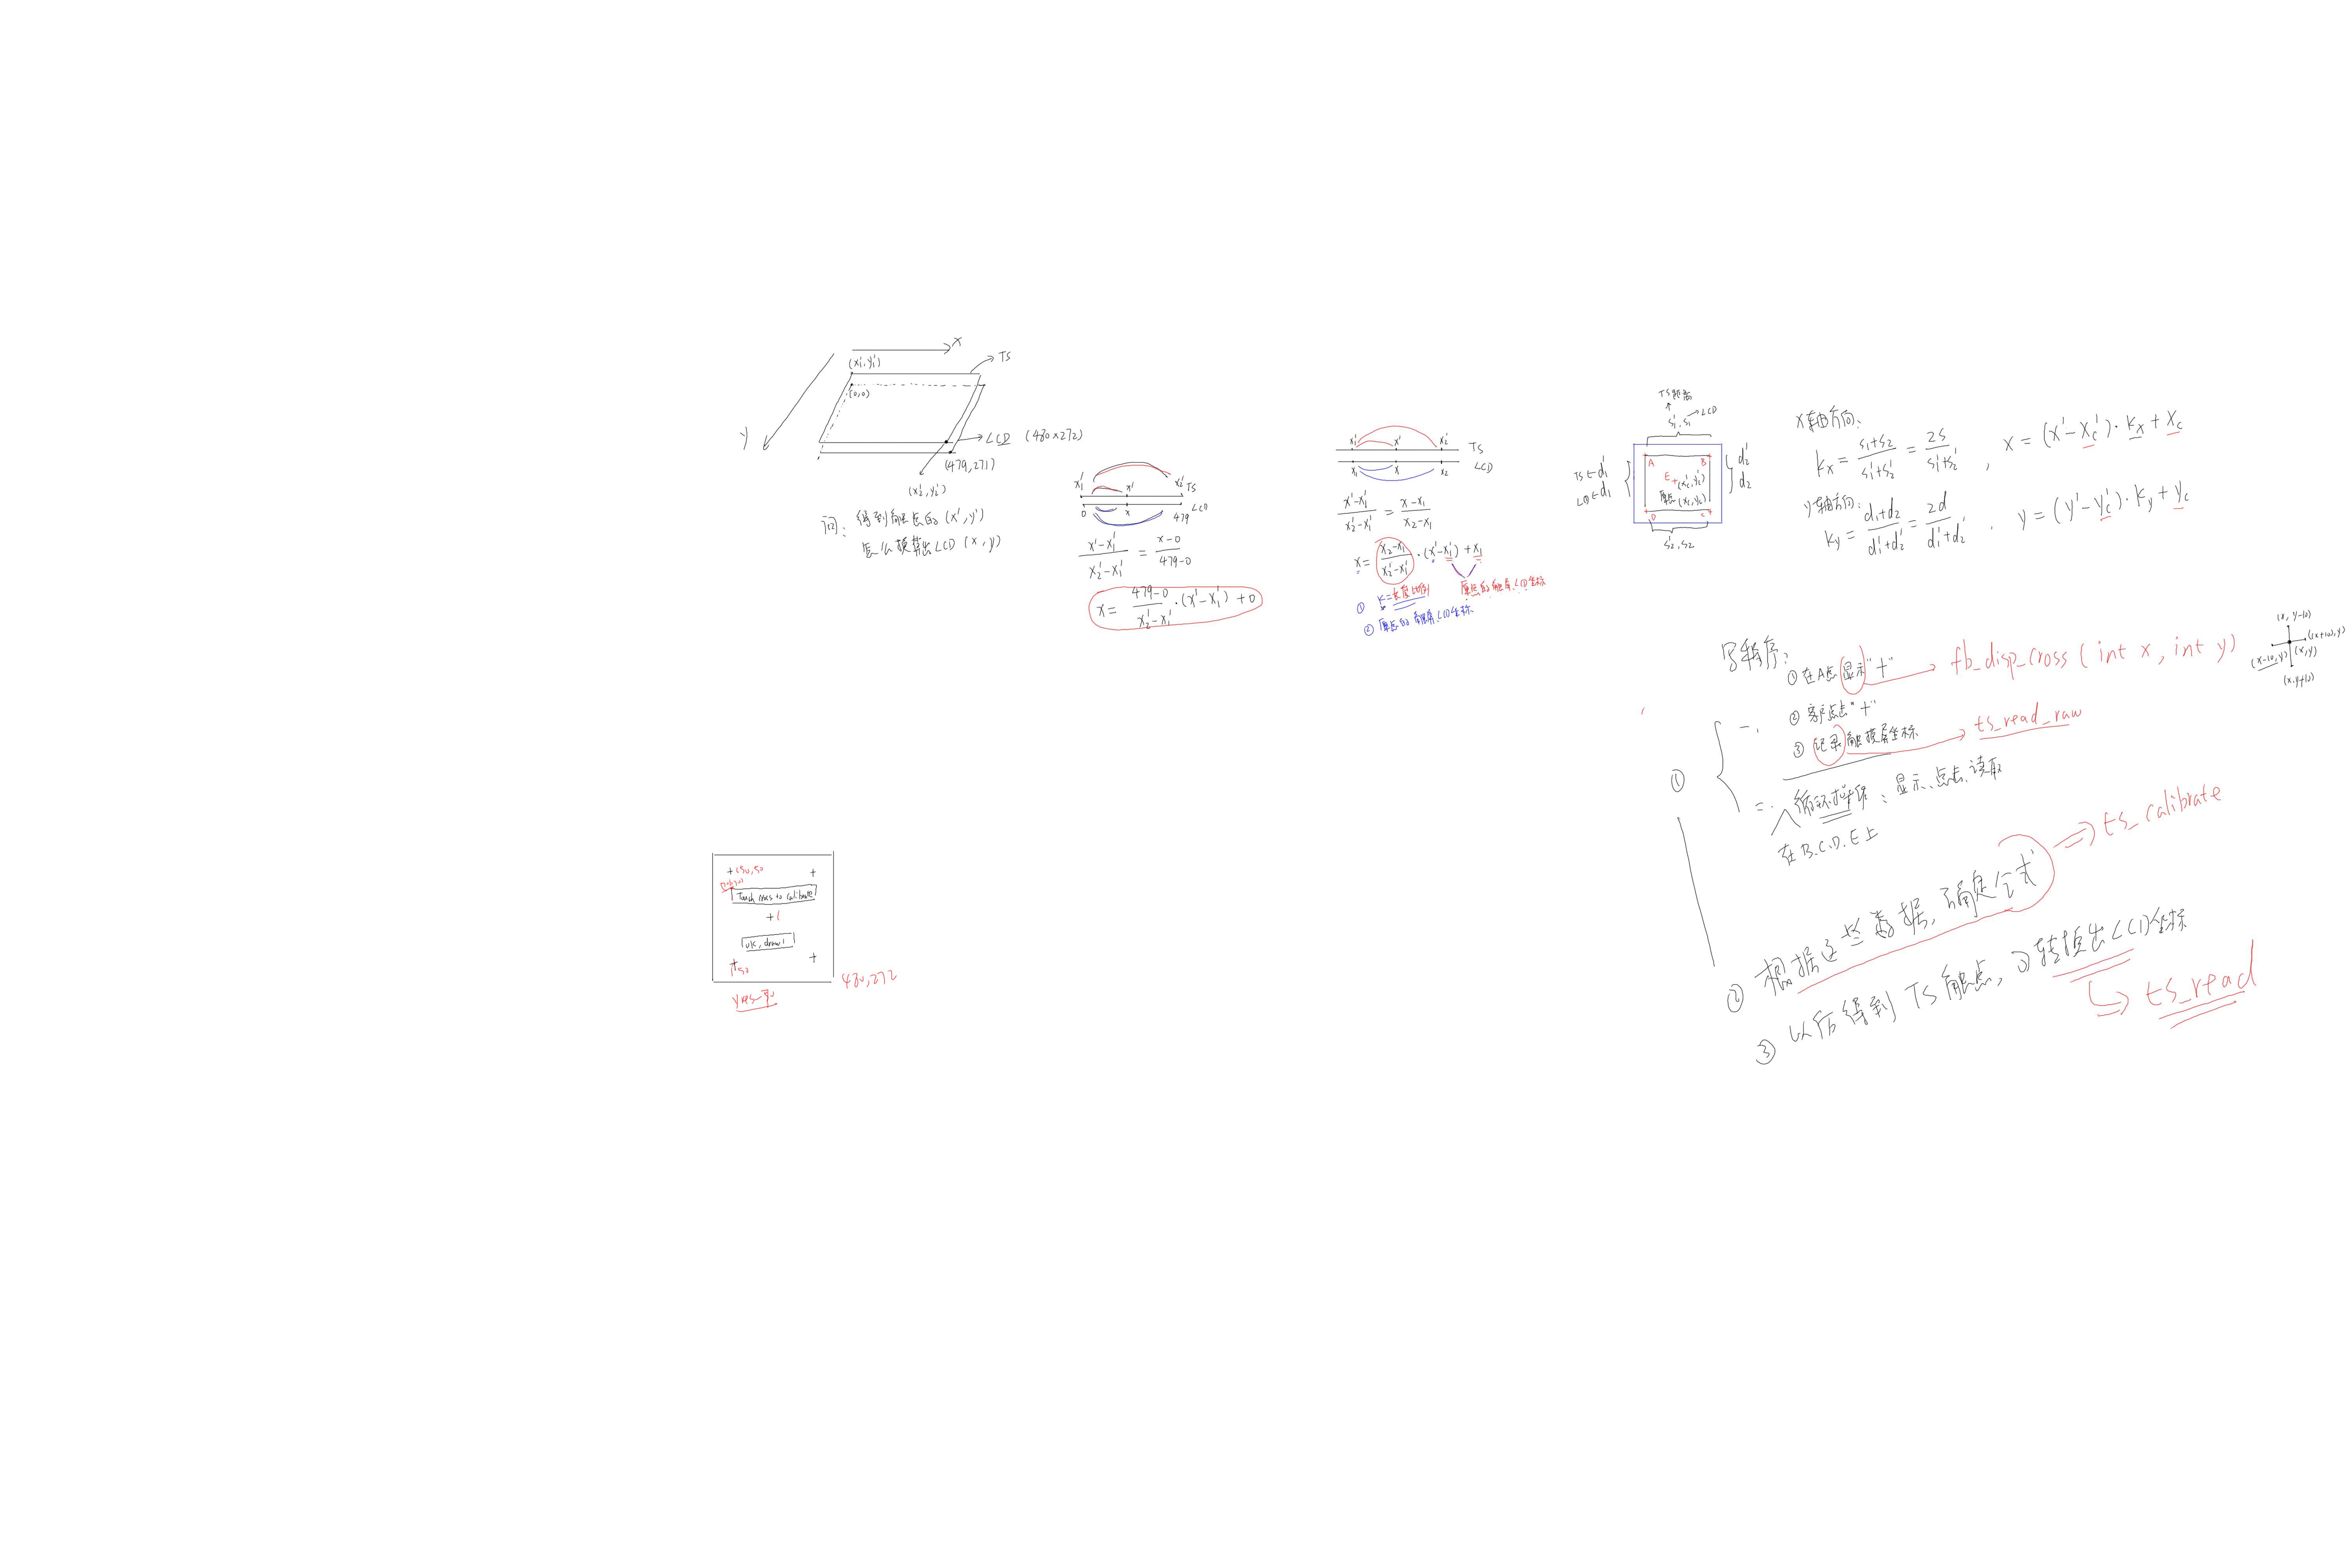 X
(x₁', y₁')
TS
(0,0)
Y
LCD (480×272)
(479,271)
(x₂', y₂')
问: 得到触点的(x', y')
怎么换算出LCD(x, y)
x₁' x' x₂' TS
0 x 479 LCD
(x'-x₁')/(x₂'-x₁') = (x-0)/(479-0)
x = (479-0)/(x₂'-x₁')·(x'-x₁')+0
x₁' x' x₂' TS
x₁ x x₂ LCD
(x'-x₁')/(x₂'-x₁') = (x-x₁)/(x₂-x₁)
x = (x₂-x₁)/(x₂'-x₁')·(x'-x₁')+x₁
① K=长度比例
原点的触屏、LCD坐标
② 原点的触屏、LCD坐标
TS距离
s₁', s₁ LCD
A B
TS←d₁'
LCD←d₁
d₂'
d₂
E (x_c', y_c')
原点 (x_c, y_c)
D C
s₂', s₂
X轴方向:
Kx = (s₁+s₂)/(s₁'+s₂') = 2s/(s₁'+s₂') , x = (x'-x_c')·kx + x_c
Y轴方向:
Ky = (d₁+d₂)/(d₁'+d₂') = 2d/(d₁'+d₂') , y = (y'-y_c')·ky + y_c
写程序:
① 在A点显示"十" fb_disp_cross(int x, int y)
(x, y-10)
(x+10, y)
(x-10, y) (x, y)
(x, y+10)
①
一、
② 客户点击"十"
③ 记录触摸屏坐标 ts_read_raw
二、循环操作: 显示、点击、读取
在B.C.D.E上
② 根据这些数据, 确定公式 ts_calibrate
③ 以后得到TS触点, 转换出LCD坐标
ts_read
+ (50,50 +
Touch cross to calibrate
+
ok, draw!
+ 50 +
yres-50
480,272